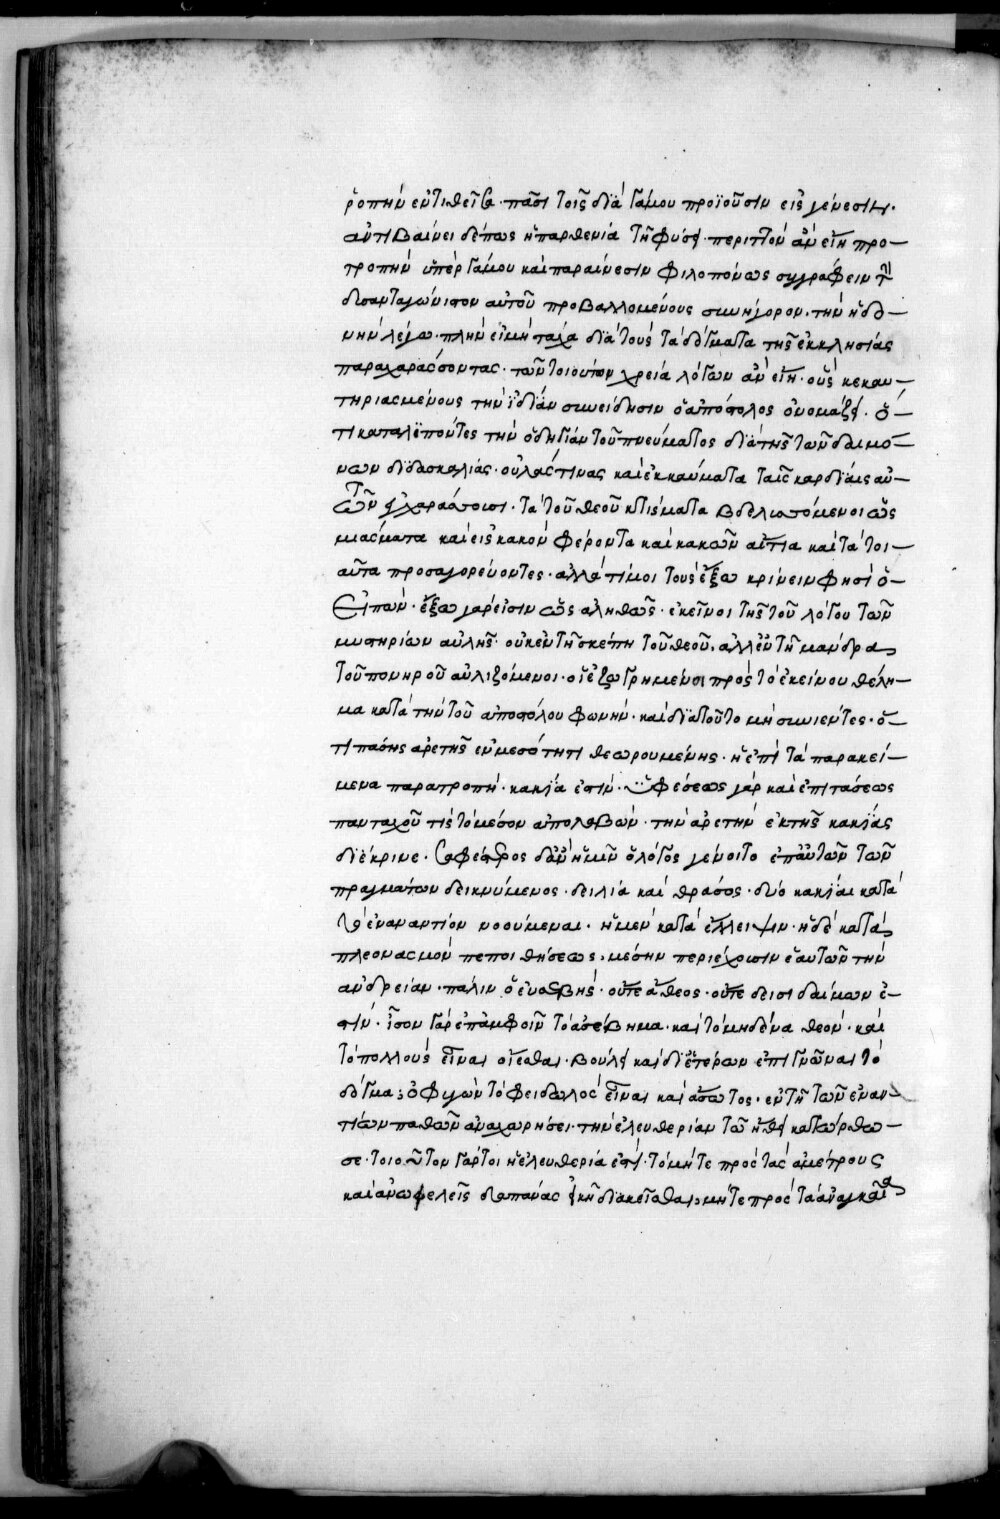 ῥοπὴν ἐντιθεῖσα· πᾶσι τοῖς διὰ γάμου προϊοῦσιν εἰς γένεσιν·
ἀντιβαίνει δέ πως ἡ παρθενία τῇ φύσει· περιττὸν ἂν εἴη προ-
τροπὴν ὑπὲρ γάμου καὶ παραίνεσιν φιλοπόνως συγγράφειν τὴν
δυσανταγώνιστον αὐτοῦ προβαλλομένους συνήγορον· τὴν ἡδο-
νὴν λέγω· πλὴν εἰ μὴ τάχα διὰ τοὺς τὰ δόγματα τῆς ἐκκλησίας
παραχαράσσοντας· τῶν τοιούτων χρεία λόγων ἂν εἴη· οὓς κεκαυ-
τηριασμένους τὴν ἰδίαν συνείδησιν ὁ ἀπόστολος ὀνομάζει· ὅ-
τι καταλιπόντες τὴν ὁδηγίαν τοῦ πνεύματος διὰ τῆς τῶν δαιμό-
νων διδασκαλίας· οὐλάς τινας καὶ ἐκκαύματα ταῖς καρδίαις αὐ-
τῶν ἐγχαράσσουσι· τὰ τοῦ θεοῦ κτίσματα βδελυσσόμενοι ὡς
μιάσματα καὶ εἰς κακὸν φέροντα καὶ κακῶν αἴτια καὶ τὰ τοι-
αῦτα προσαγορεύοντες· ἀλλὰ τί μοι τοὺς ἔξω κρίνειν φησὶ ὁ
εἰπών· ἔξω γάρ εἰσιν ὡς ἀληθῶς· ἐκεῖνοι τῆς τοῦ λόγου τῶν
μυστηρίων αὐλῆς· οὐκ ἐν τῇ σκέπῃ τοῦ θεοῦ, ἀλλ' ἐν τῇ μάνδρα
τοῦ πονηροῦ αὐλιζόμενοι· οἱ ἐζωγρημένοι πρὸς τὸ ἐκείνου θέλη-
μα κατὰ τὴν τοῦ ἀποστόλου φωνήν· καὶ διατοῦτο μὴ συνιέντες· ὅ-
τι πάσης ἀρετῆς ἐν μεσότητι θεωρουμένης· ἡ ἐπὶ τὰ παρακεί-
μενα παρατροπὴ· κακία ἐστίν· ὑφέσεως γὰρ καὶ ἐπιτάσεως
πανταχοῦ τις τὸ μέσον ἀπολαβὼν· τὴν ἀρετὴν ἐκ τῆς κακίας
διέκρινε· σαφέστερος δ' ἂν ἡμῖν ὁ λόγος γένοιτο ἐπ' αὐτῶν τῶν
πραγμάτων δεικνύμενος· δειλία καὶ θράσος· δύο κακίαι κατὰ
τὸ ἐναντίον νοούμεναι· ἡ μὲν κατὰ ἔλλειψιν· ἡ δὲ κατὰ
πλεονασμὸν πεποιθήσεως, μέσην περιέχουσιν ἑαυτῶν τὴν
ἀνδρείαν· πάλιν ὁ εὐσεβὴς· οὔτε ἄθεος· οὔτε δεισιδαίμων ἐ-
στίν· ἴσον γὰρ ἐπ' ἀμφοῖν τὸ ἀσέβημα· καὶ τὸ μηδένα θεόν· καὶ
τὸ πολλοὺς εἶναι οἴεσθαι· βούλει καὶ δι' ἑτέρων ἐπιγνῶναι τὸ
δόγμα; ὁ φυγὼν τὸ φειδωλὸς εἶναι καὶ ἄσωτος· ἐν τῇ τῶν ἐναν-
τίων παθῶν ἀναχωρήσει· τὴν ἐλευθερίαν τῷ ἤθει κατώρθω-
σε· τοιοῦτον γάρ τοι ἡ ἐλευθερία ἐστί· τὸ μήτε πρὸς τὰς ἀμέτρους
καὶ ἀνωφελεῖς δαπάνας εἰκῇ διακεῖσθαι, μήτε πρὸς τὰ ἀναγκαῖα